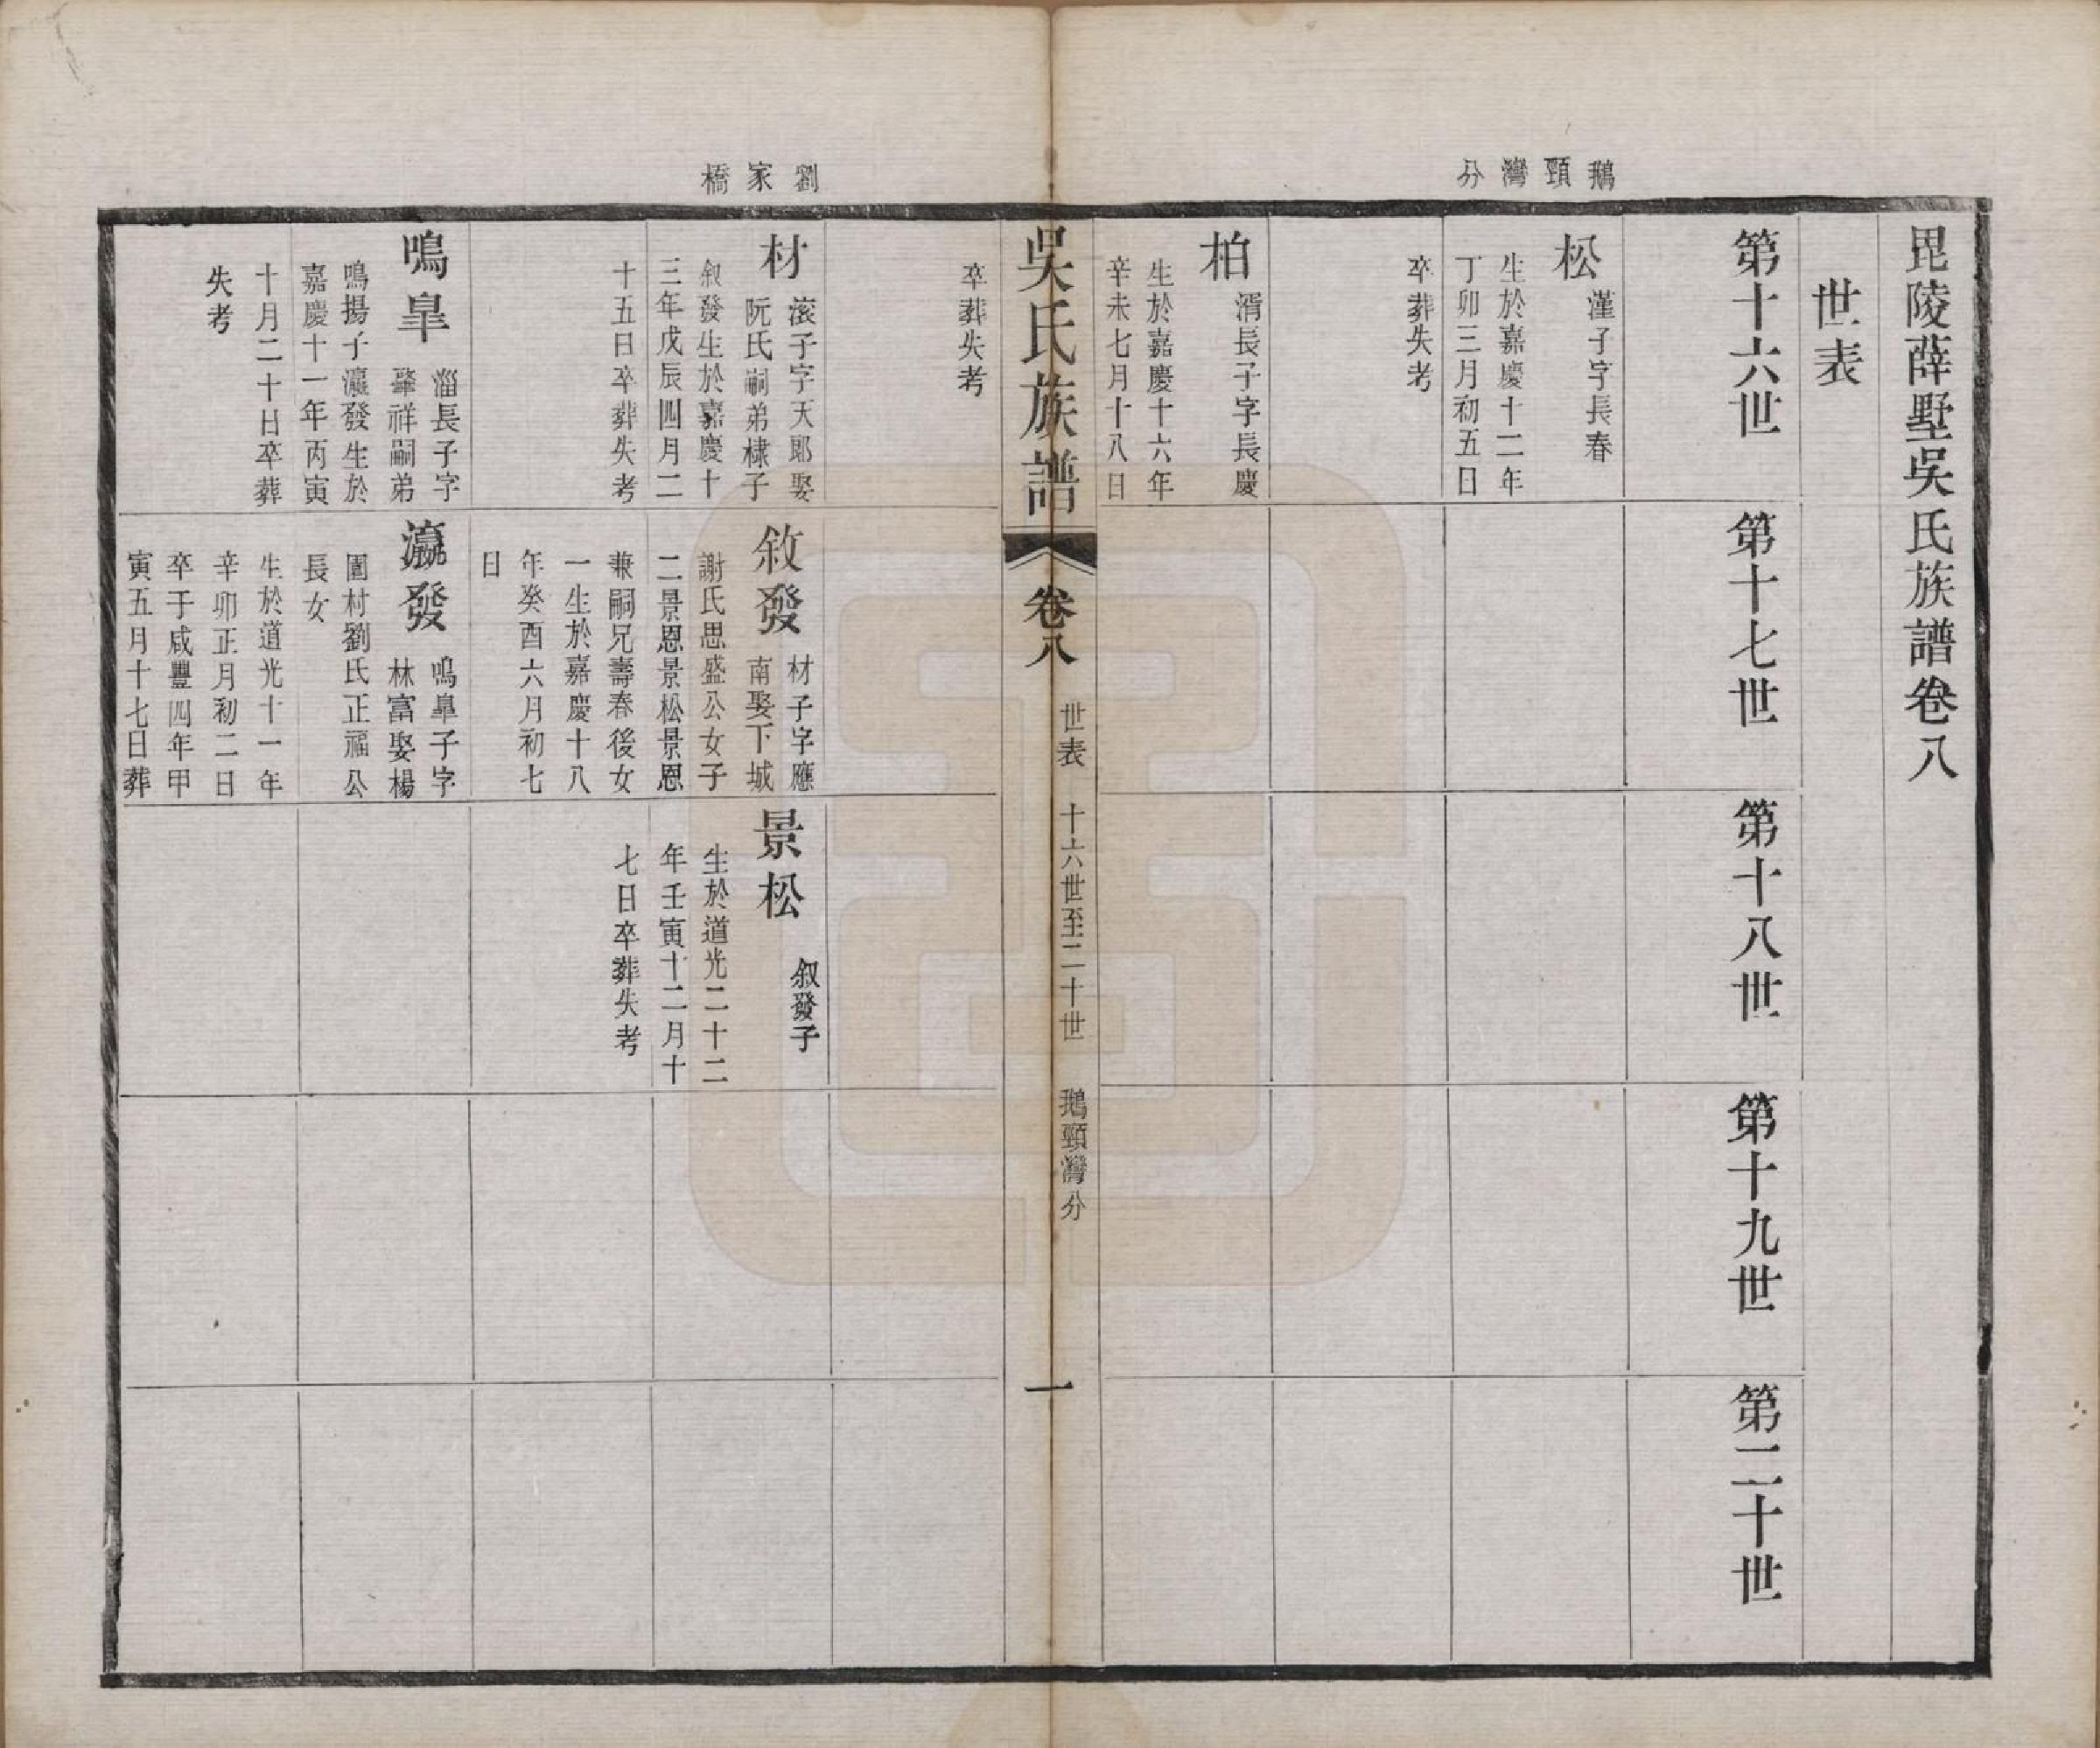 毘陵薛墅吳氏族譜卷八
世表
第十六世
第十七世
第十八世
第十九世
第二十世
鵝頸灣分
松
漢子字長春
生於嘉慶十二年
丁卯三月初五日
卒葬失考
柏
湑長子字長慶
生於嘉慶十六年
辛未七月十八日
吳氏族譜
卷八
世表
十六世至二十世
鵝頸灣分
一
卒葬失考
劉家橋
材
滚子字天郎娶
阮氏嗣弟棣子
叙發生於嘉慶十
三年戊辰四月二
十五日卒葬失考
敘發
材子字應
南娶下城
謝氏思盛公女子
二景恩景松景恩
兼嗣兄壽春後女
一生於嘉慶十八
年癸酉六月初七
日
景松
叙發子
生於道光二十二
年壬寅十二月十
七日卒葬失考
鳴臯
淄長子字
肇祥嗣弟
鳴揚子瀛發生於
嘉慶十一年丙寅
十月二十日卒葬
失考
瀛發
鳴臯子字
林富娶楊
園村劉氏正福公
長女
生於道光十一年
辛卯正月初二日
卒于咸豐四年甲
寅五月十七日葬